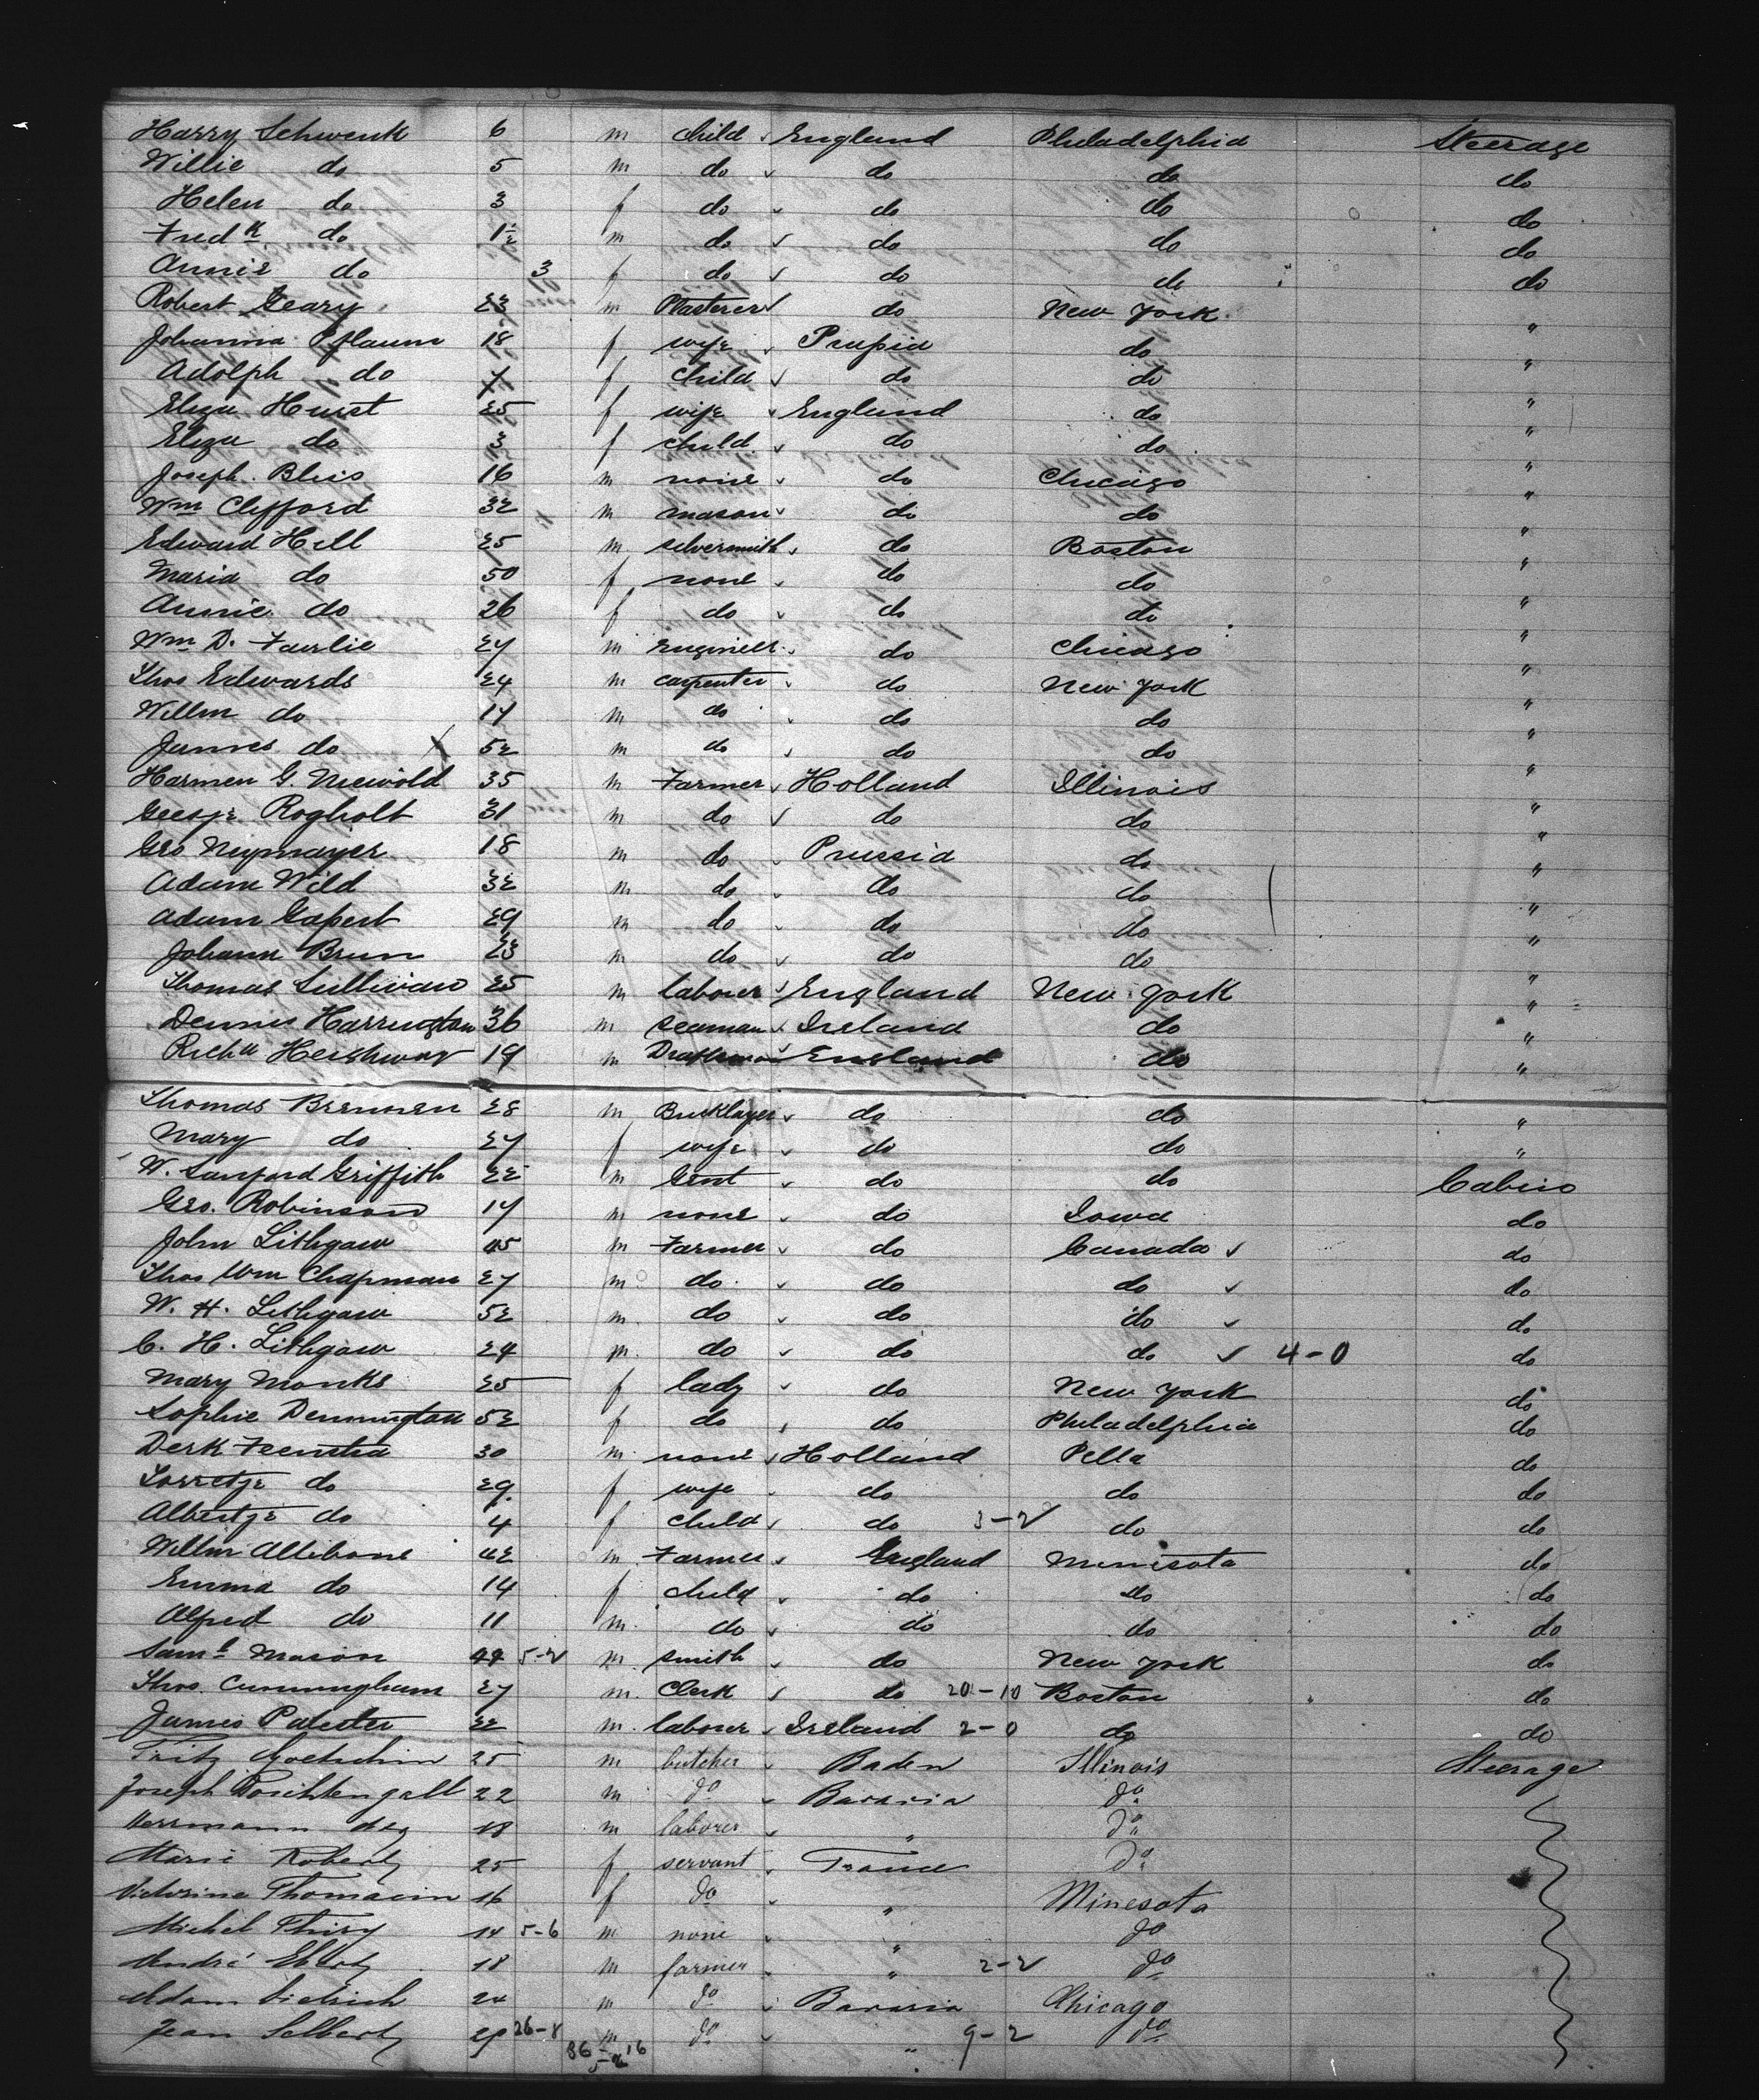 Harry Schwenk 6 m child England Philadelphia Steerage
Willie do 5 m do do do do
Helen do 3 f do do do do
Fredk do 1½ m do do do do
Annie do 3 f do do do do
Robert Geary 23 m Plasterer do New York "
Johanna Pflaum 18 f wife Prussia do "
Adolph do f child do do "
Eliza Hurst 25 f wife England do "
Eliza do 3 f child do do "
Joseph Bliss 16 m none do Chicago "
Wm Clifford 32 m mason do do "
Edward Hill 25 m silversmith do Boston "
Maria do 50 f none do do "
Annie do 26 f do do do "
Wm D. Fairlie 27 m Engineer do Chicago "
Thos Edwards 24 m carpenter do New York "
Willm do 17 m do do do "
James do X 52 m do do do "
Harmen G. Niewold 35 m Farmer Holland Illinois "
Geesje Rogholt 31 m do do do "
Geo Neymayer 18 m do Prussia do "
Adam Wild 32 m do do do "
Adam Gapert 29 m do do do "
Johann Brun 23 m do do do "
Thomas Sullivan 25 m laborer England New York "
Dennis Harrington 36 m seaman Ireland do "
Richd 19 m England do "
Thomas Brennen 28 m Bricklayer do do "
Mary do 27 f wife do do "
W. Sanford Griffith 22 m Gent do do Cabin
Geo. Robinson 17 m none do Iowa do
John Lithgow 45 m Farmer do Canada do
Thos Wm Chapman 27 m do do do do
W. H. Lithgow 52 m do do do do
C. H. Lithgow 24 m do do do 4-0 do
Mary Monks 25 f lady do New York do
Sophie Dennington 52 f do do Philadelphia do
Derk Feenstra 30 m none Holland Pella do
do 29 f wife do do do
Albertje do 4 f child do 3-2 do do
Willm Allibone 42 m Farmer England Minesota do
Emma do 14 f child do do do
Alfred do 11 m do do do do
Saml Mason 44 5-2 m smith do New York do
Thos. Cunningham 27 m Clerk do 20-10 Boston do
James 22 m laborer Ireland 2-0 do do
Fritz 25 m butcher Baden Illinois Steerage
Joseph 22 m do Bavaria do
Herrmann 18 m laborer " do
Marie Robert 25 f servant France do
Victorine Thomasin 16 f do " Minesota
Michel Thiry 14 5-6 m none " do
André 18 m farmer " 2-2 do
Adam Dietrich 24 m do Bavaria Chicago
Jean 29 26-8 m do " 9-2 do
36-16